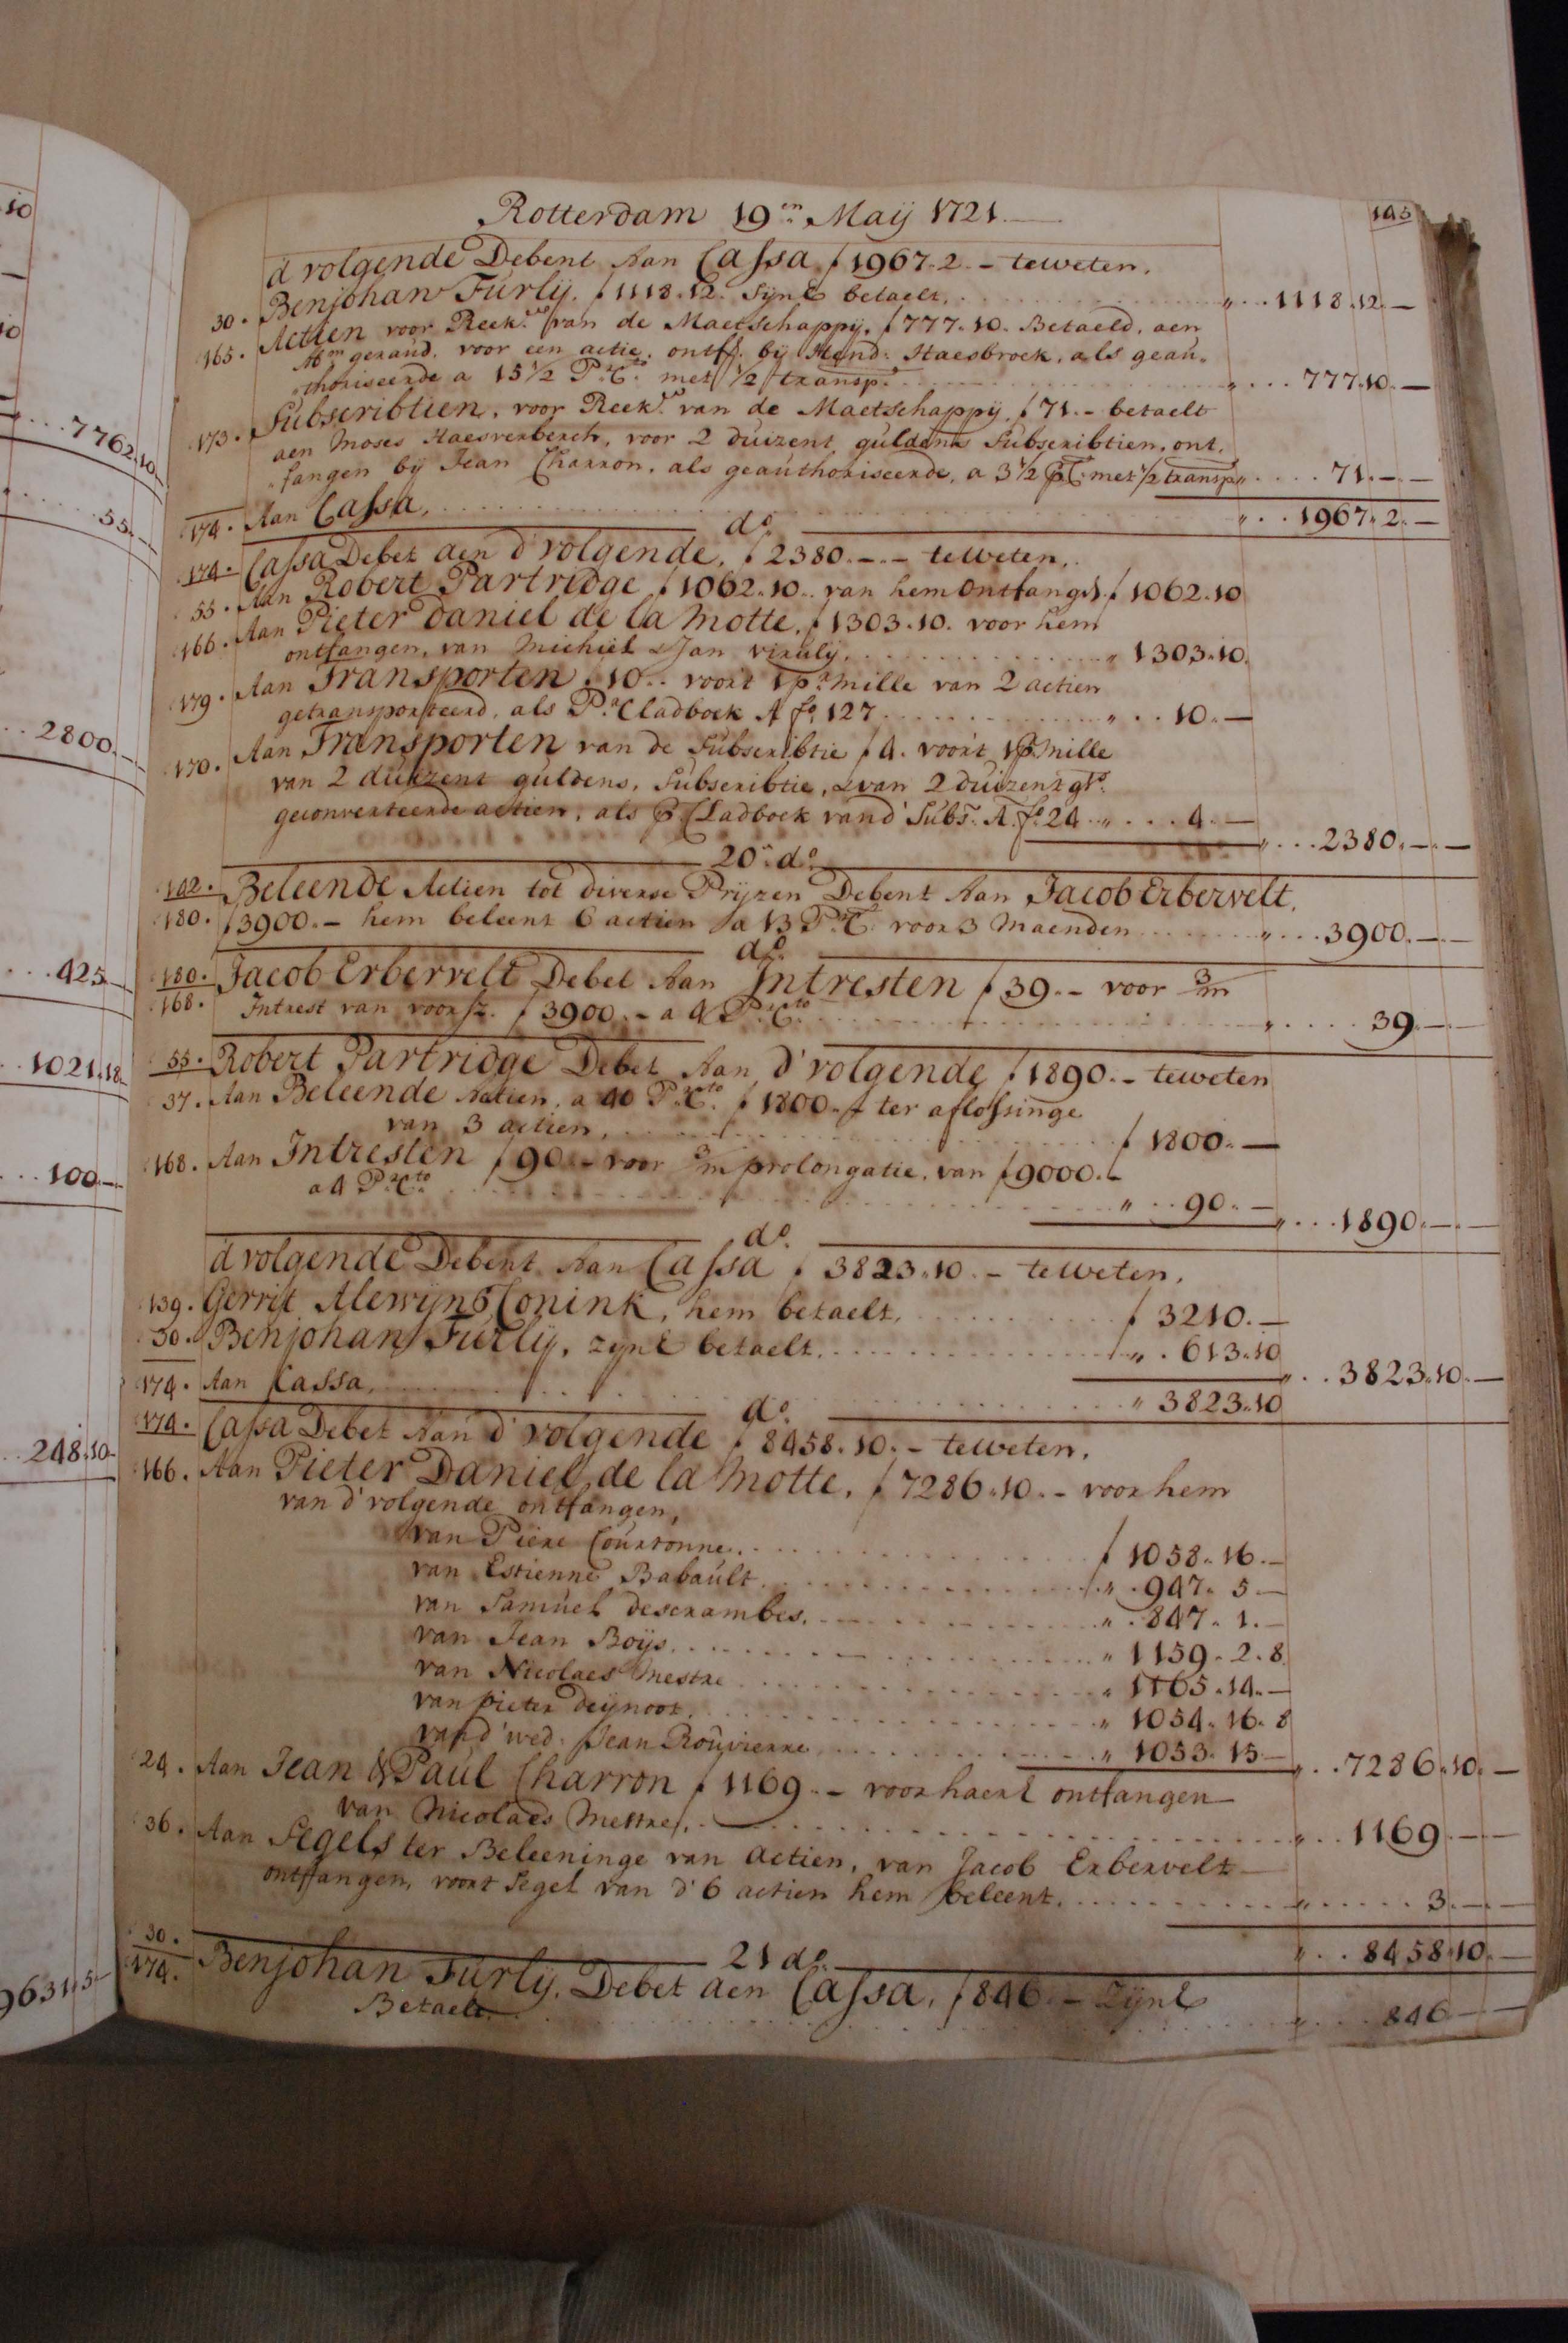 10
10
7762.10
55.-
2800.-
425.-
1021.18.-
100.-
248.10.-
9631.5-
Rotterdam 19.en Maij 1721.
195
d'volgende Debent Aan Cassa ƒ1967.2.- teweten.
30. Benjohan Furlij. ƒ1118.12. Sijnt betaelt. „ 1118.12.-
165. Actien voor Reek. van de Maetschappij, ƒ777.10. Betaeld, aen
Abm geraud, voor een actie, ontf. bij Hend: Haesbroek, als geau-
thoriseerde a 15 1/2 P.r C.to met 1/2 transp. „ 777.10.-
173. Subscribtien, voor Reek. van de Maetschappij, ƒ71.- betaelt
aen Moses Haesverberch, voor 2 duizent guldens Subscribtien, ont-
fangen bij Jean Charron, als geauthoriseerde, a 3 1/2 P C.to met 1/2 transp „ 71.-.-
174. Aan Cassa, „ 1967.2.-
d.o
174. Cassa Debet aen d'volgende, ƒ2380.-.- teweten,
55. Aan Robert Partridge ƒ1062.10.. van hem Ontfangst ƒ1062.10
166. Aan Pieter Daniel de la Motte, ƒ1303.10. voor hem
ontfangen, van Michiel & Jan viruly, „ 1303.10.
179. Aan Transporten ƒ10.. voort 1 p.r mille van 2 actien
getransporteerd, als P.r Cladboek A fo. 127 „ 10.-
170. Aan Transporten van de Subscribtie ƒ4. voort 1 P mille
van 2 duizent guldens, Subscribtie, & van 2 duizent gls.
geconverteerde actien, als P Cladboek vand' Subs. A. fo. 24 „ 4.-
„ 2380.-.-
20.n d.o
142. Beleende Actien tot diverse Prijzen Debent Aan Jacob Erbervelt,
180. ƒ3900.- hem beleent 6 actien a 13 P.r C.to voor 3 Maenden „ 3900.-.-
d.o
180. Jacob Erbervelt Debet Aan Intresten ƒ39.- voor 3/m
168. Intrest van voorsz. ƒ3900.- a 4 P.r C.to „ 39.-
55. Robert Partridge Debet Aan d'volgende ƒ1890.- teweten
37. Aan Beleende Actien, a 40 P.r C.to ƒ1800.- ter aflossinge
van 3 actien, ƒ1800.-
168. Aan Intresten ƒ90.- voor 3/m prolongatie, van ƒ9000.-
a 4 P.r C.to „ 90.-
„ 1890.-.-
d.o
d'volgende Debent Aan Cassa ƒ3823.10.- teweten,
139. Gerrit Alewijns Conink, hem betaelt, ƒ3210.-
30. Benjohan Furlij, zijnt betaelt. „ 613.10
„ 3823.10.-
174. Aan Cassa, „ 3823.10
d.o
174. Cassa Debet Aan d'volgende ƒ8458.10.- teweten.
166. Aan Pieter Daniel de la Motte, ƒ7286.10.- voor hem
van d'volgende ontfangen,
van Piere Courtonne. ƒ1058.16.-
van Estienne Babault. „ 947.5-
van Samuel descrambes. „ 847.1.-
van Jean Boijs. „ 1159.2.8
van Nicolaes Mestre „ 1165.14.-
van pieter Deijnoot. „ 1054.16.8
vand' wed: Jean Rouvierre „ 1053.15-
„ 7286.10.-
24. Aan Jean & Paul Charron ƒ1169.- voor haerl ontfangen
van Nicolaes Mestre, „ 1169.-
36. Aan Segels ter Beleeninge van actien, van Jacob Erbervelt
ontfangen, voort Segel van d'6 actien hem beleent. „ 3.-
„ 8458.10.-
21 d.o
30.
174. Benjohan Furlij, Debet aen Cassa, ƒ846.- Zijnt
Betaelt „ 846-